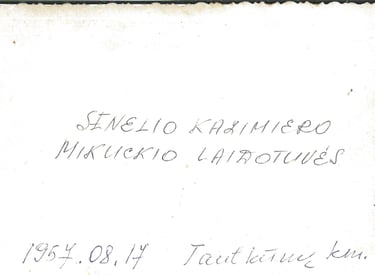 SENELIO KAZIMIERO
MIKUCKIO LAIDOTUVĖS
1957.08.17 Tautkūnų km.